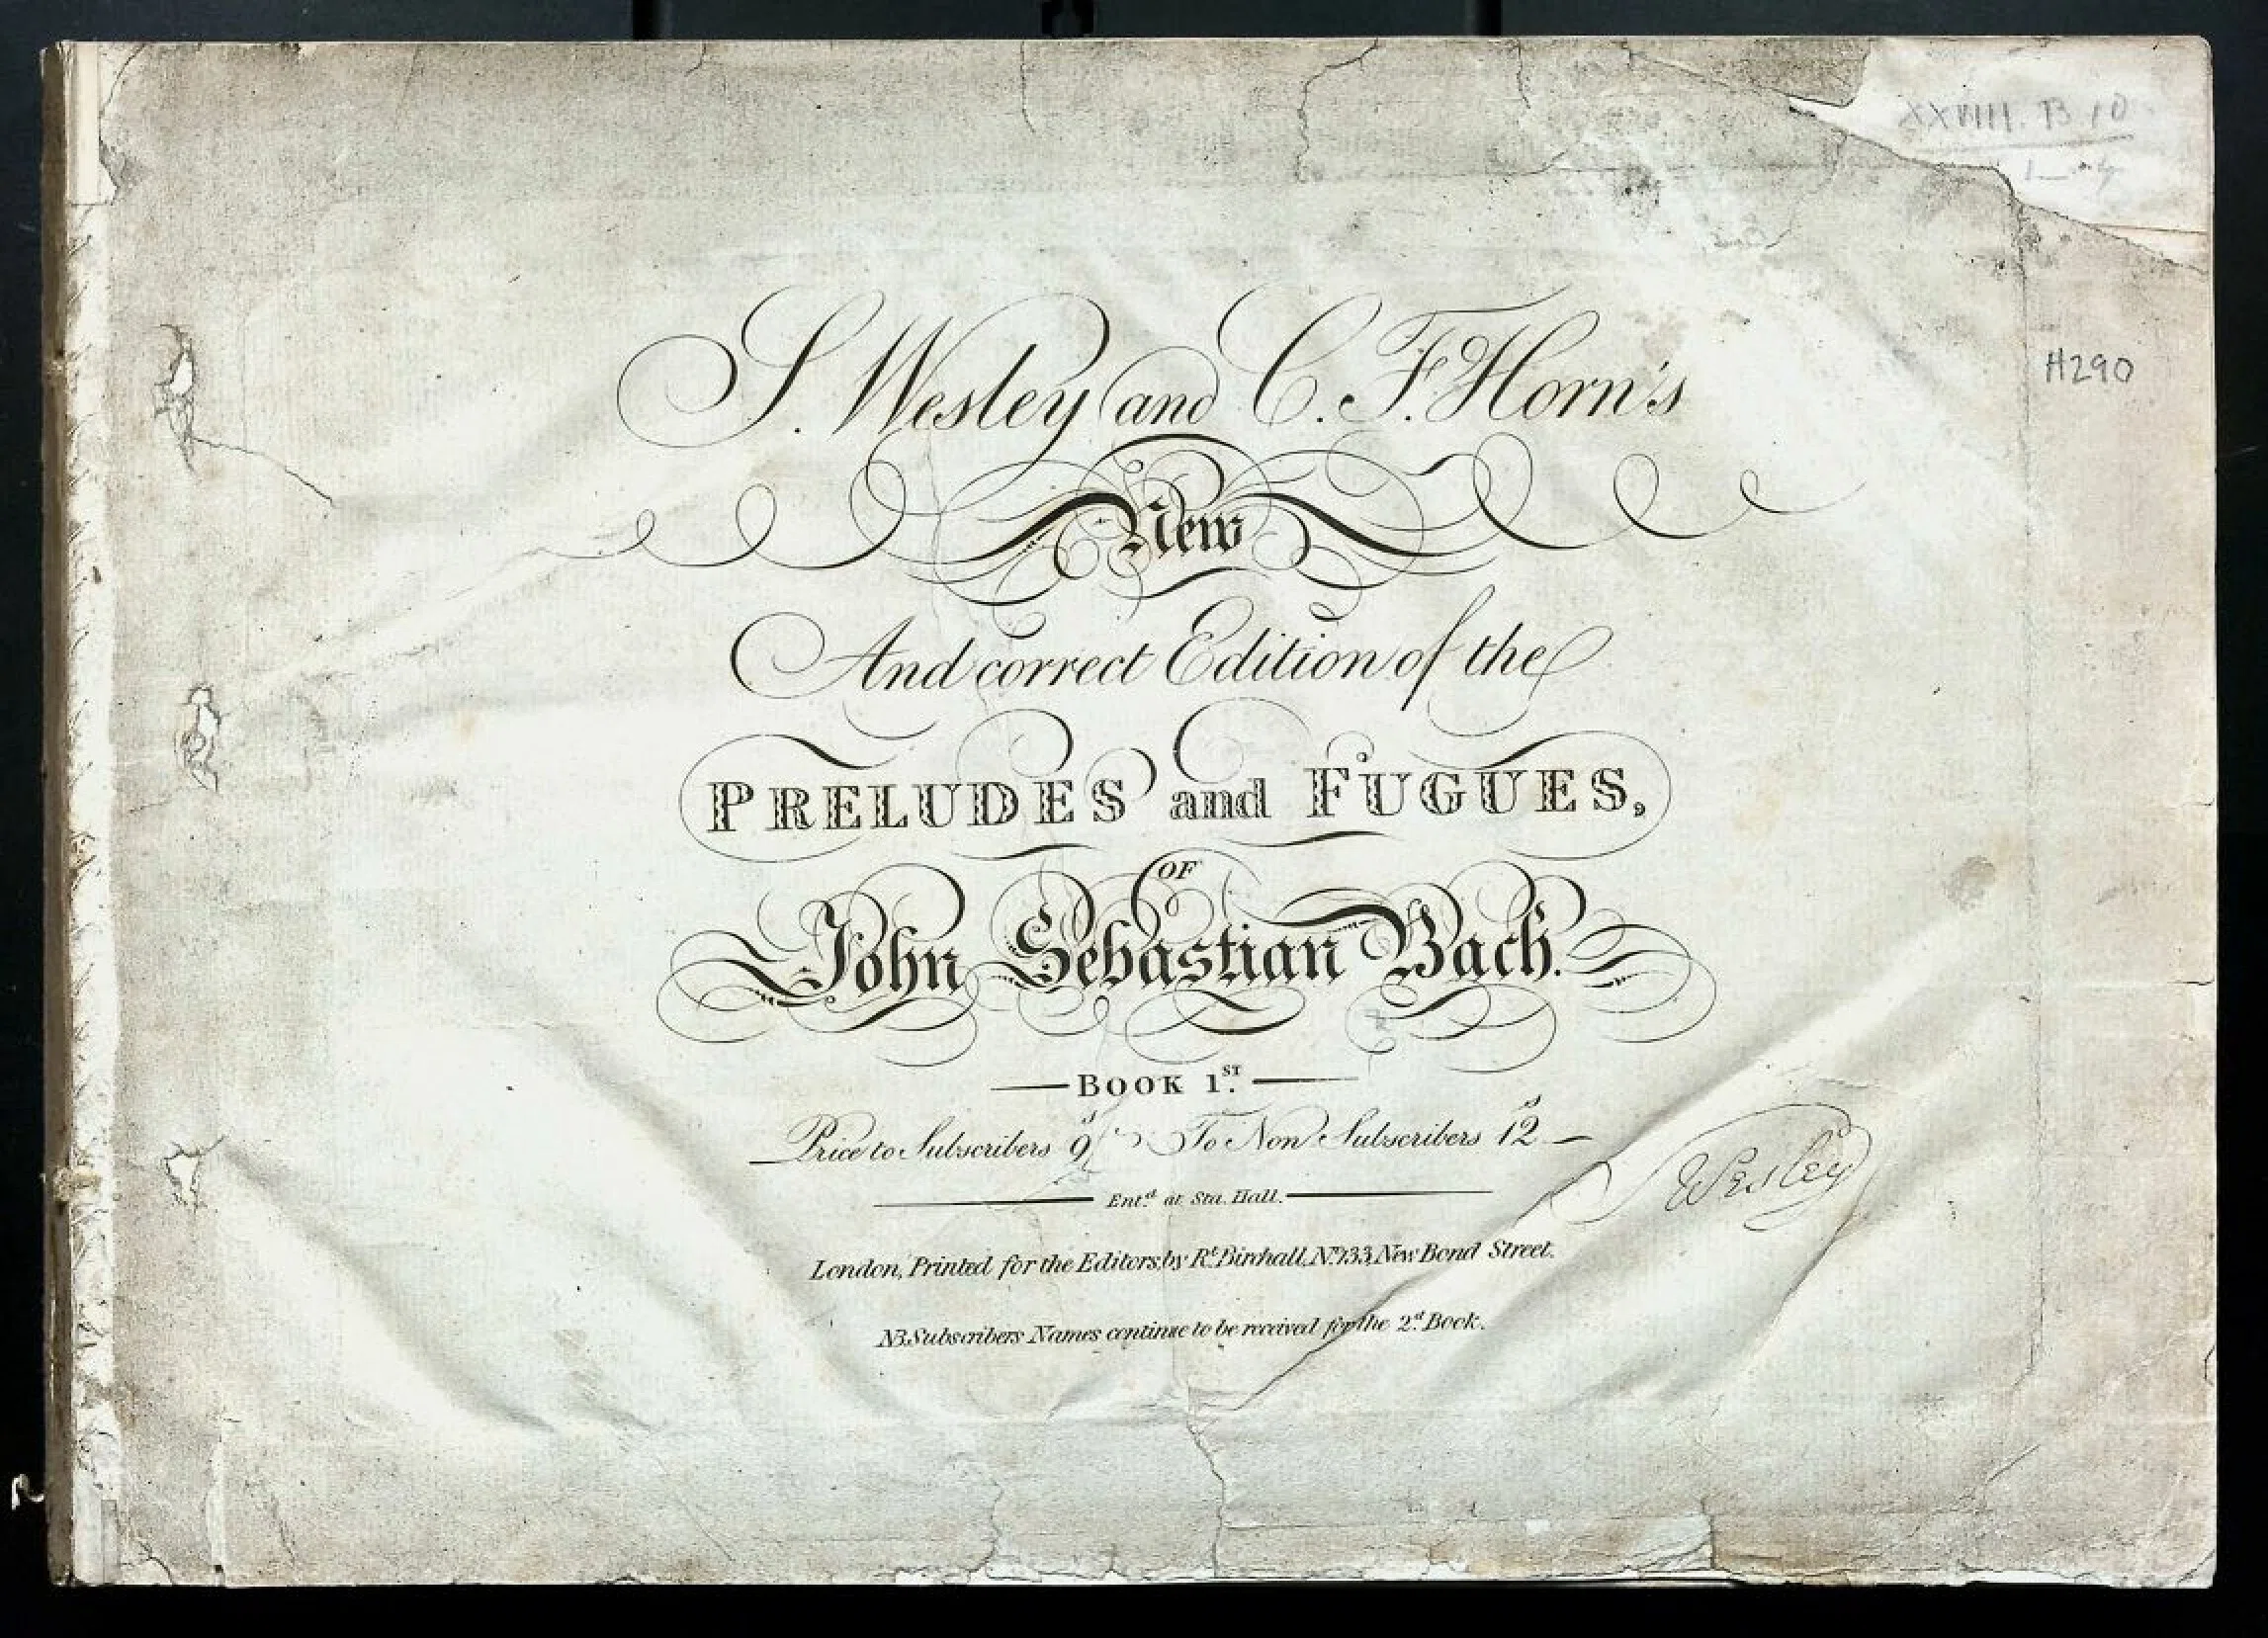 XXVIII. B. 10
H290
S. Wesley and C. F. Horn's
New
And correct Edition of the
PRELUDES and FUGUES,
OF
John Sebastian Bach.
BOOK 1.ST
Price to Subscribers 9s To Non Subscribers 12s
Ent.d at Sta. Hall.
Wesley
London, Printed for the Editors, by R.t Birchall, No. 133, New Bond Street.
NB. Subscribers Names continue to be received for the 2.d Book.